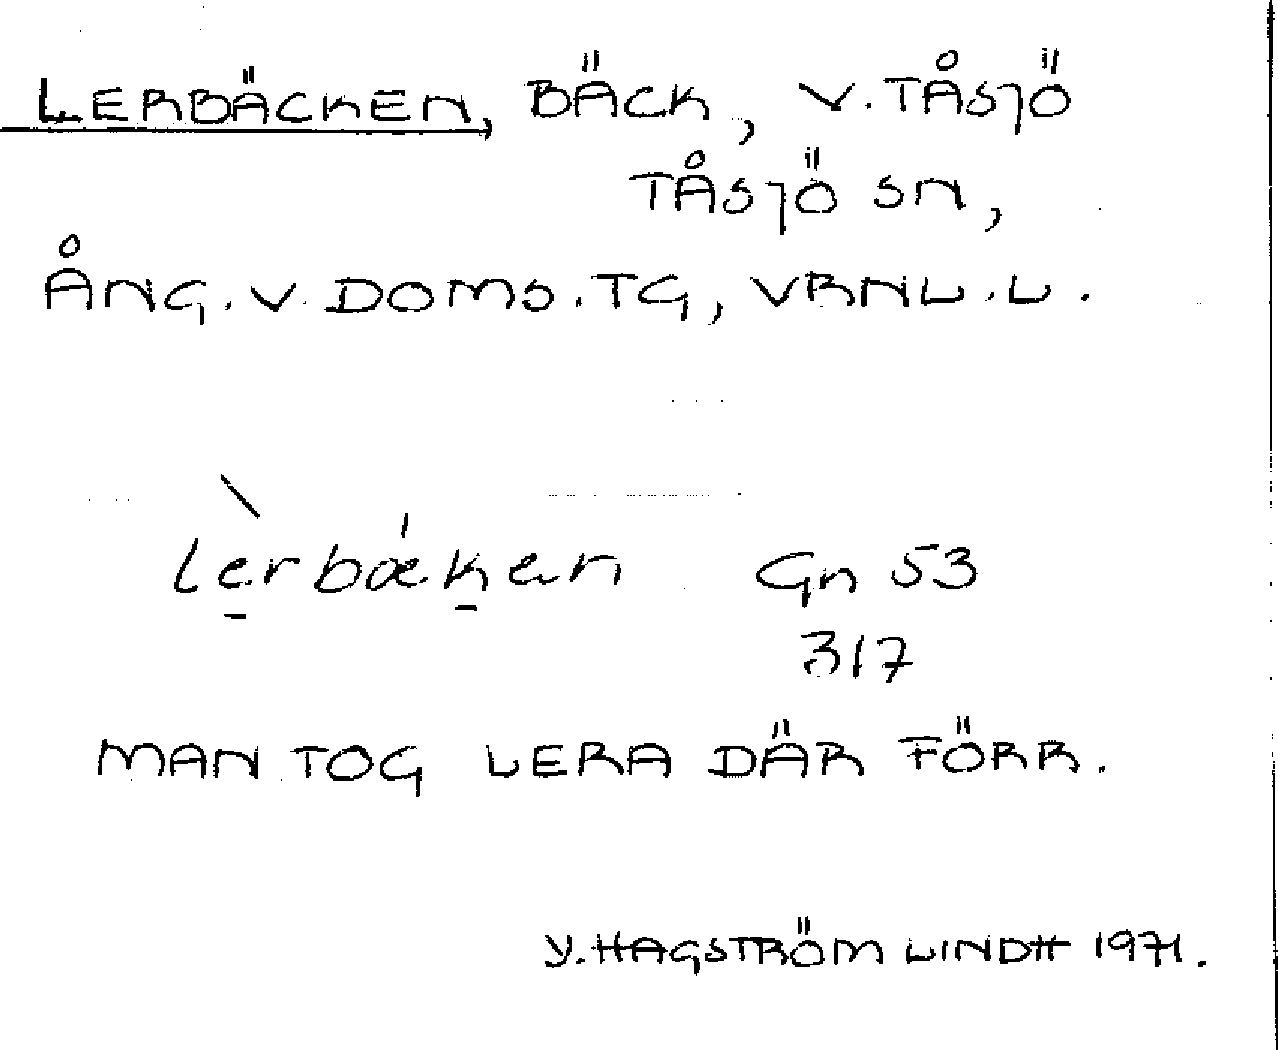 LERBÄCKEN, BÄCK, V. TÅSJÖ
TÅSJÖ SN,
ÅNG. V. DOMS. TG, VRNL. L.
lèrbæ̍ken Gn 53
317
MAN TOG LERA DÄR FÖRR.
Y. HAGSTRÖM LINDH 1971.